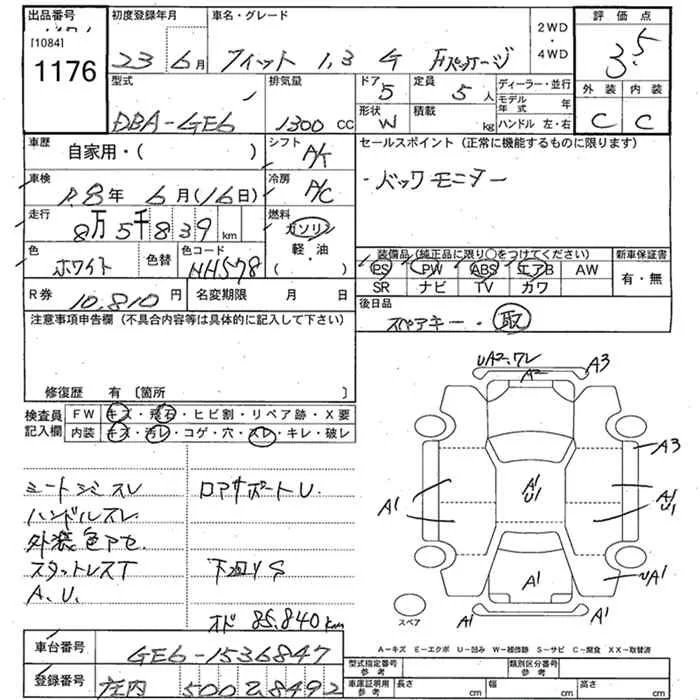 出品番号 初度登録年月 車名・グレード 2WD・4WD 評価点
[1084]
1176
23年 6月 フィット 1,3 G Fパッケージ 3.5
型式 排気量 ドア 5 定員 5人 ディーラー・並行 外装 内装
モデル年式 年
DBA-GE6 1300 CC 形状 W 積載 kg ハンドル 左・右 C C
車歴 自家用・( ) シフト A/T セールスポイント (正常に機能するものに限ります)
車検 R8年 6月(16日) 冷房 A/C ・バックモニター
走行 8万5千839km 燃料 ガソリン
軽・油
( )
色 ホワイト 色替 色コード NH578
装備品(純正品に限り○をつけてください) 新車保証書
PS PW ABS エアB AW 有・無
SR ナビ TV カワ
R券 10,810円 名変期限 月 日
後日品
スペアキー・取
注意事項申告欄 (不具合内容等は具体的に記入して下さい)
修復歴 有 〔箇所 〕
検査員記入欄 FW キズ・飛石・ヒビ割・リペア跡・X要
内装 キズ・汚レ・コゲ・穴・スレ・キレ・破レ
UA2.ワレ A3
A2
A3
A1 A1 U1 A1 U1
UA1
A1
A1
スペア
シートジミスレ ロアサポートU.
ハンドルスレ
外装色アセ.
スタットレスT 下廻りS
A.U.
オド 85,840km
A-キズ E-エクボ U-凹み W-補修跡 S-サビ C-腐食 XX-取替済
車台番号 GE6-1536847
登録番号 庄内 500 ひ 8492
型式指定番号 参考 類別区分番号 参考
車庫証明用 参考 長さ cm 幅 cm 高さ cm